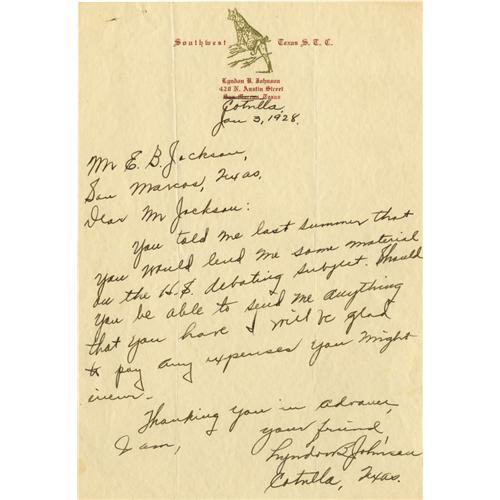 Southwest Texas S. T. C.
Lyndon B. Johnson
420 N. Austin Street
San Marcos, Texas
Cotulla,
Jan 3, 1928.
Mr E. B. Jackson,
San Marcos, Texas.
Dear Mr Jackson:
You told me last summer that
you would lend me some material
on the H.S. debating subject. Should
you be able to send me anything
that you have I will be glad
to pay any expenses you might
incur.
Thanking you in advance,
I am, your friend,
Lyndon B Johnson
Cotulla, Texas.